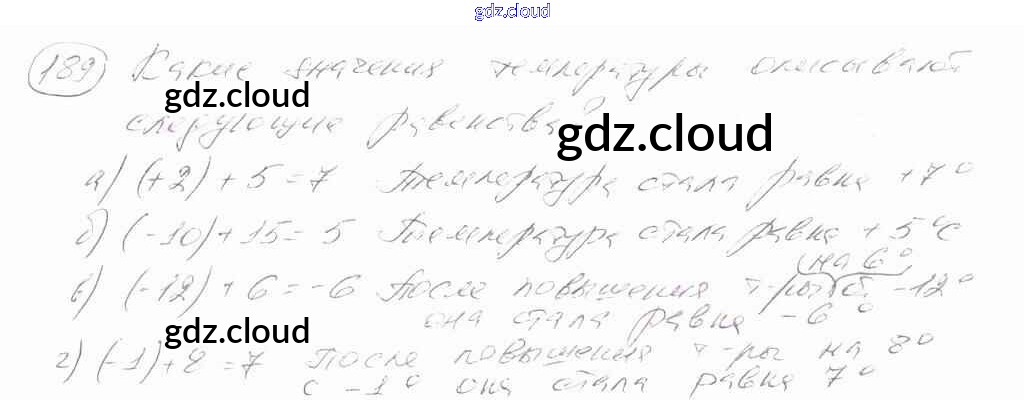 gdz.cloud
189) Какие значения температуры описывают
gdz.cloud
следующие равенства?
gdz.cloud
а) (+2) + 5 = 7 Температура стала равна +7°
б) (-10) + 15 = 5 Температура стала равна + 5°С
на 6°
в) (-12) + 6 = -6 После повышения т-ры с -12°
она стала равна -6°
gdz.cloud
г) (-1) + 8 = 7 После повышения т-ры на 8°
с -1° она стала равна 7°